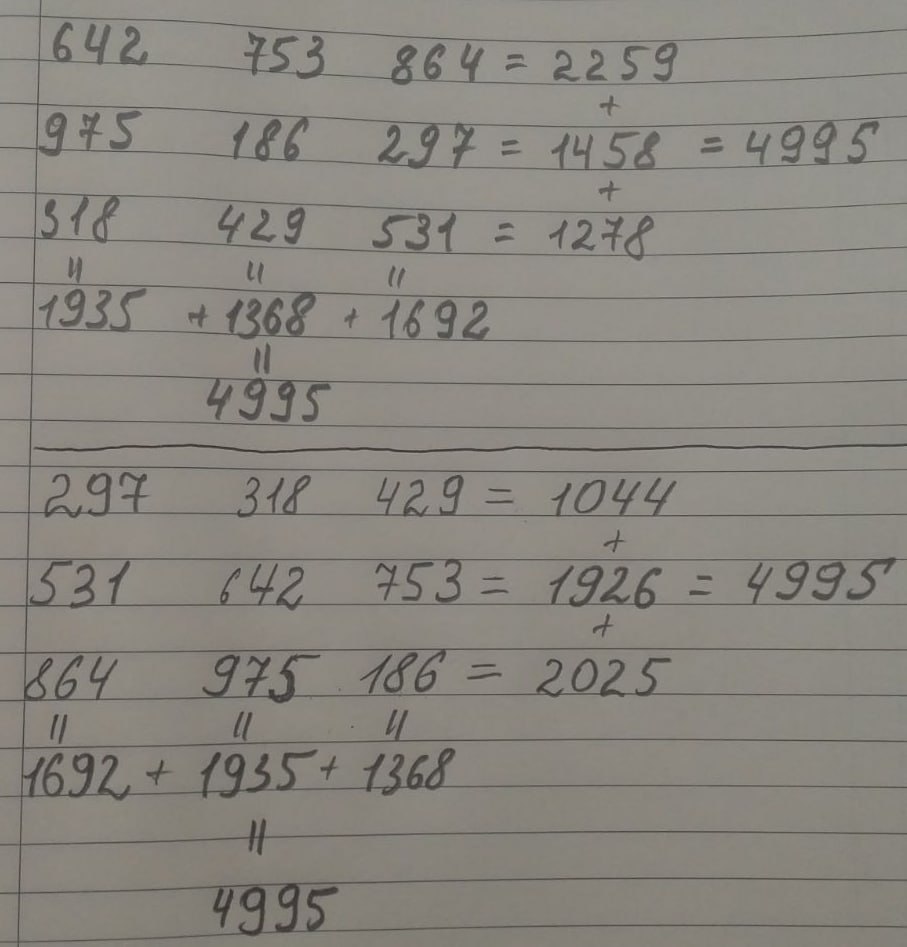 642 753 864 = 2259
+
975 186 297 = 1458 = 4995
+
318 429 531 = 1278
= = =
1935 + 1368 + 1692
=
4995
297 318 429 = 1044
+
531 642 753 = 1926 = 4995
+
864 975 186 = 2025
= = =
1692 + 1935 + 1368
=
4995